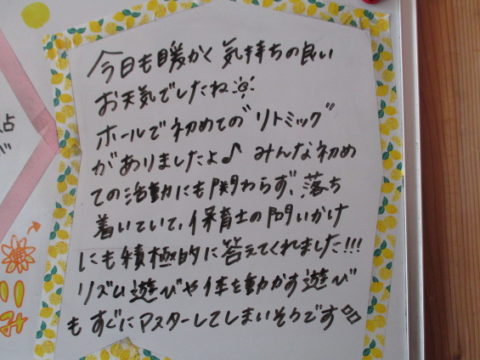 今日も暖かく気持ちの良い
お天気でしたね☼
ホールで初めての"リトミック"
がありましたよ♪ みんな初め
ての活動にも関わらず、落ち
着いていて、保育士の問いかけ
にも積極的に答えてくれました!!!
リズム遊びや体を動かす遊び
もすぐにマスターしてしまいそうです♪♪